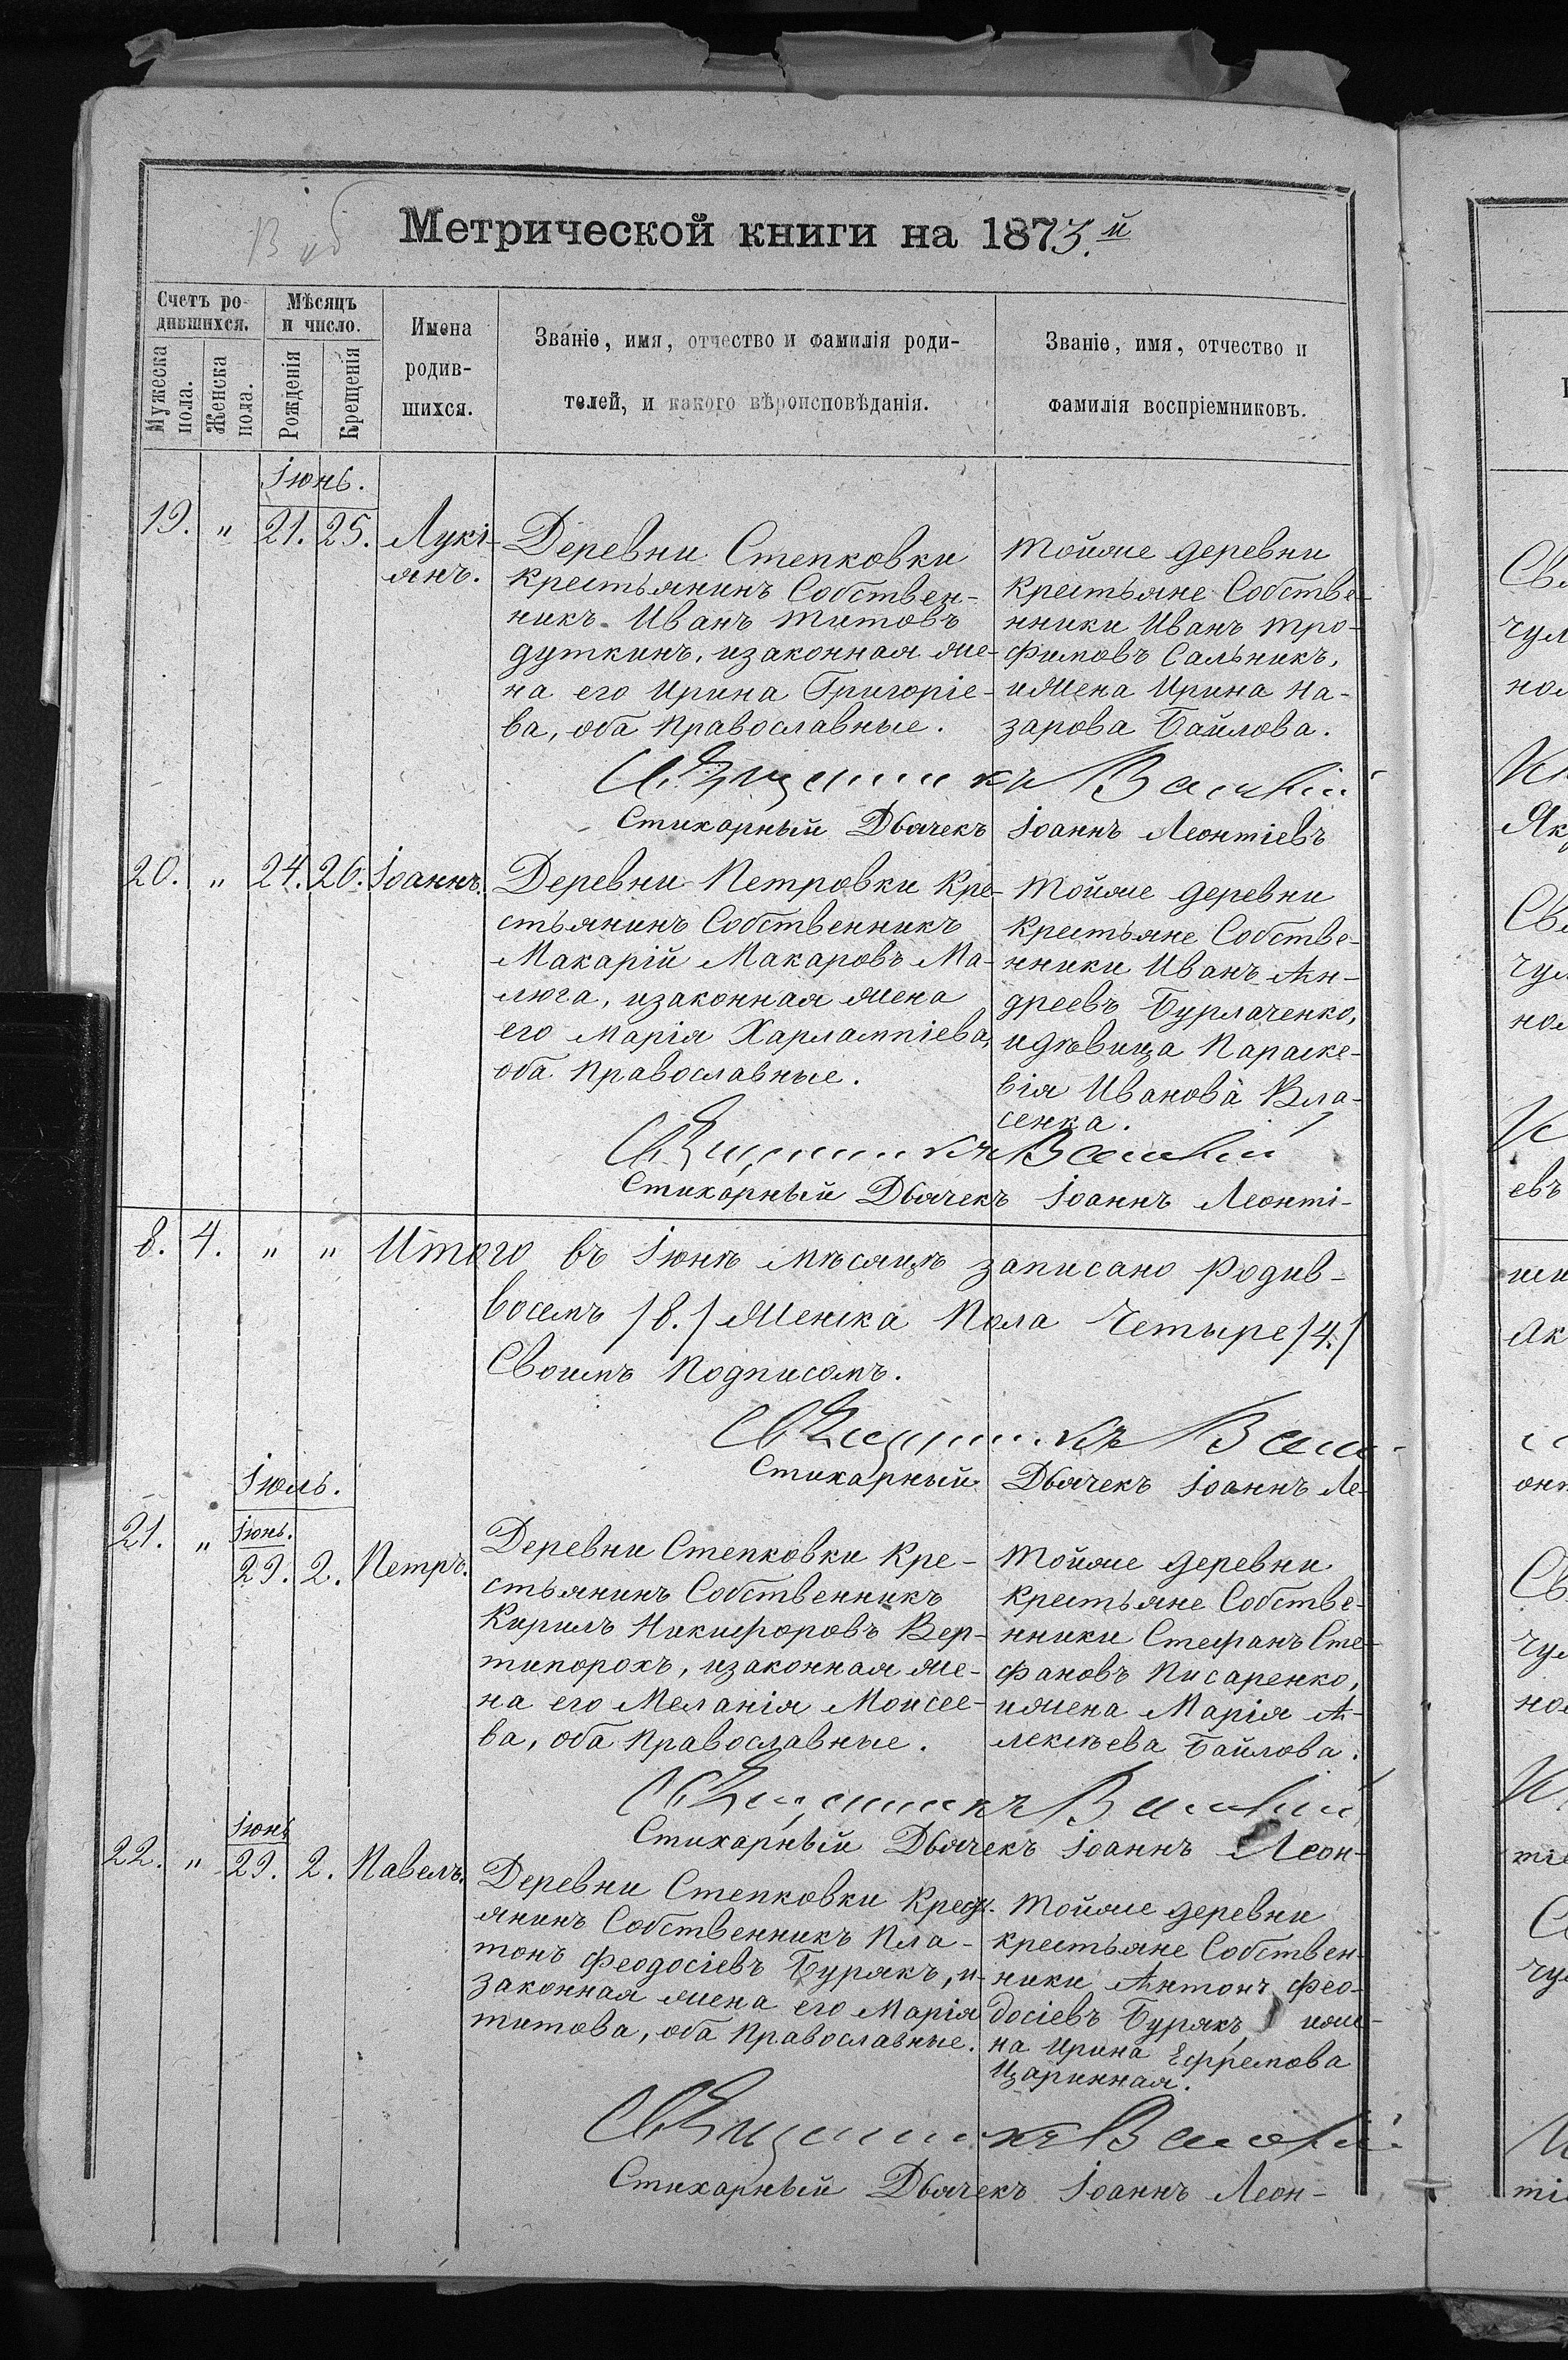 Метрической книги на 1873.й
Счетъ ро-
дившихся.
Мужеска пола.
Женска пола.
Мѣсяцъ
и число.
Рожденія
Крещенія
Имена
родив-
шихся.
Званіе, имя, отчество и фамилія роди-
телей, и какого вѣроисповѣданія.
Званіе, имя, отчество и
фамилія воспріемниковъ.
Іюнь.
19. „ 21. 25. Лукі-
янъ.
Деревни Степковки
крестьянинъ Собствен-
никъ Иванъ Титовъ
Дуткинъ, изаконная же-
на его Ирина Григоріе-
ва, оба Православные.
Тойже деревни
Крестьяне Собстве-
нники Иванъ Тро-
фимовъ Сальникъ,
иЖена Ирина На-
зарова Байлова.
Священникъ Василій
Стихарный Дьячекъ Іоаннъ Леонтіевъ
20. „ 24. 26. Іоаннъ.
Деревни Петровки Кре-
стьянинъ Собственникъ
Макарій Макаровъ Ма-
люга, изаконная жена
его Марія Харлампіева,
оба Православные.
Тойже деревни
Крестьяне Собстве-
нники Иванъ Ан-
дреевъ Бурлаченко,
идѣвица Параске-
вія Иванова Вла-
сенка.
Священникъ Василій
Стихарный Дьячекъ Іоаннъ Леонті-
8. 4. „ „ Итого въ Іюнѣ мѣсяцѣ записано Родив-
восемъ /8./ Женска Пола Четыре /4./
Своимъ Подписомъ.
Священникъ Васи-
Стихарный Дьячекъ Іоаннъ Ле-
Іюль.
21. „ Іюнь. 29. 2. Петръ.
Деревни Степковки Кре-
стьянинъ Собственникъ
Кирилъ Никифоровъ Вер-
типорохъ, изаконная же-
на его Меланія Моисее-
ва, оба Православные.
Тойже деревни
Крестьяне Собстве-
нники Стефанъ Сте-
фановъ Писаренко,
иЖена Марія А-
лексѣева Байлова.
Священникъ Василій
Стихарный Дьячекъ Іоаннъ Леон-
22. „ Іюнь 29. 2. Павелъ.
Деревни Степковки Крест-
янинъ Собственникъ Пла-
тонъ Феодосіевъ Бурякъ, и-
законная жена его Марія
Титова, оба Православные.
Тойже деревни
крестьяне Собствен-
ники Антонъ Фео-
досіевъ Бурякъ, иже-
на Ирина Ефремова
Царинная.
Священникъ Василій
Стихарный Дьячекъ Іоаннъ Леон-